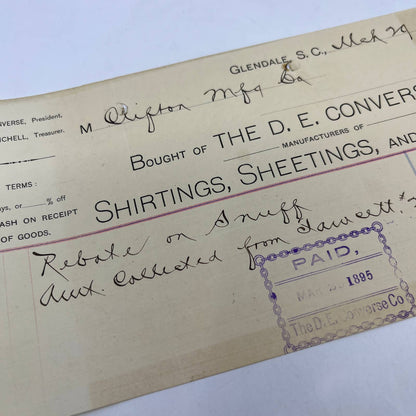 GLENDALE, S. C., Mch 29
NVERSE, President.
CHELL, Treasurer.
M Clifton Mfg Co
BOUGHT OF THE D. E. CONVERSE
MANUFACTURERS OF
SHIRTINGS, SHEETINGS, AND
TERMS:
ays, or % off
CASH ON RECEIPT
OF GOODS.
Rebate on Snuff
Amt. Collected from Fawcett. #
PAID,
1895
The D. E. Converse Co